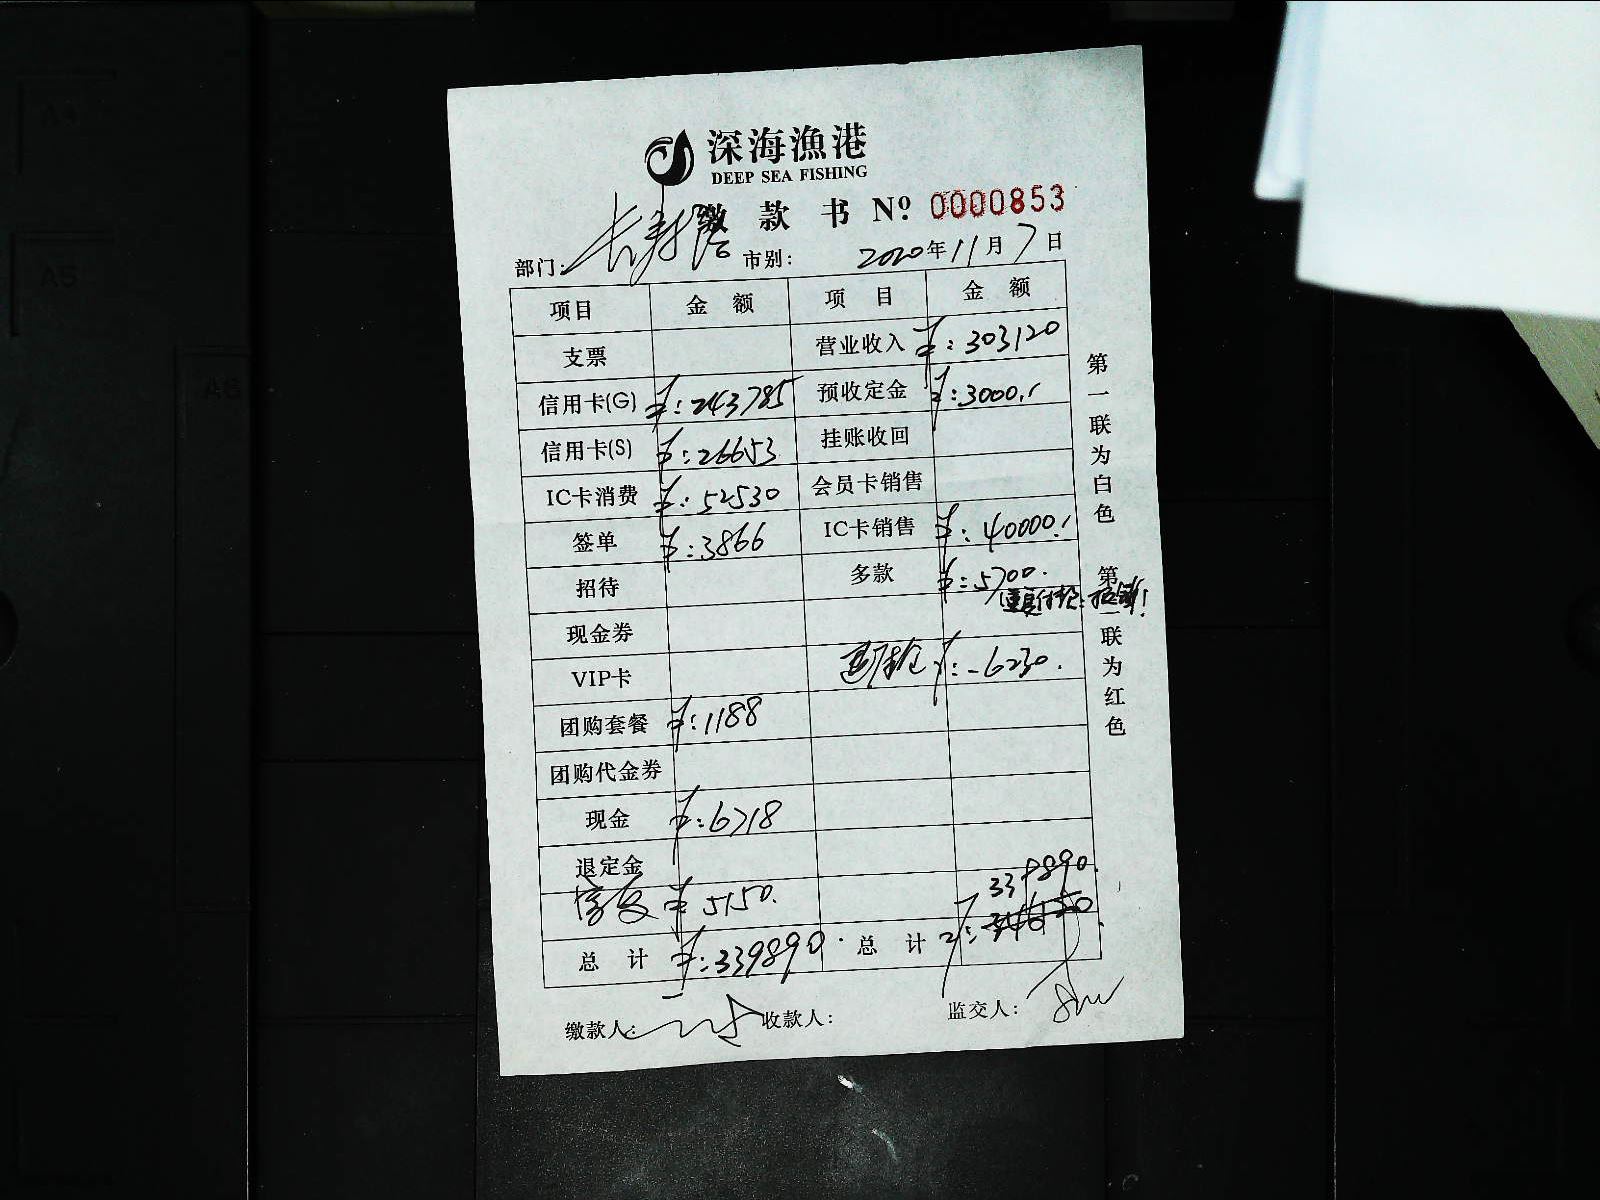 深海漁港
DEEP SEA FISHING
缴款书 Nº 0000853
部门: 长寿路 市别: 2020年11月7日
项目 金额 项目 金额
支票 营业收入 ¥:303120
信用卡(G) ¥:243785 预收定金 ¥:3000.
信用卡(S) ¥:26653 挂账收回
IC卡消费 ¥:52530 会员卡销售
签单 ¥:3866 IC卡销售 ¥:40000.
招待 多款 ¥:5700.
现金券
VIP卡 ¥:-6230.
团购套餐 ¥:1188
团购代金券
现金 ¥:6718
退定金
¥ 5150. 339890.
总计 ¥:339890. 总计 ¥:346120.
缴款人: 收款人: 监交人:
第一联为白色 第二联为红色